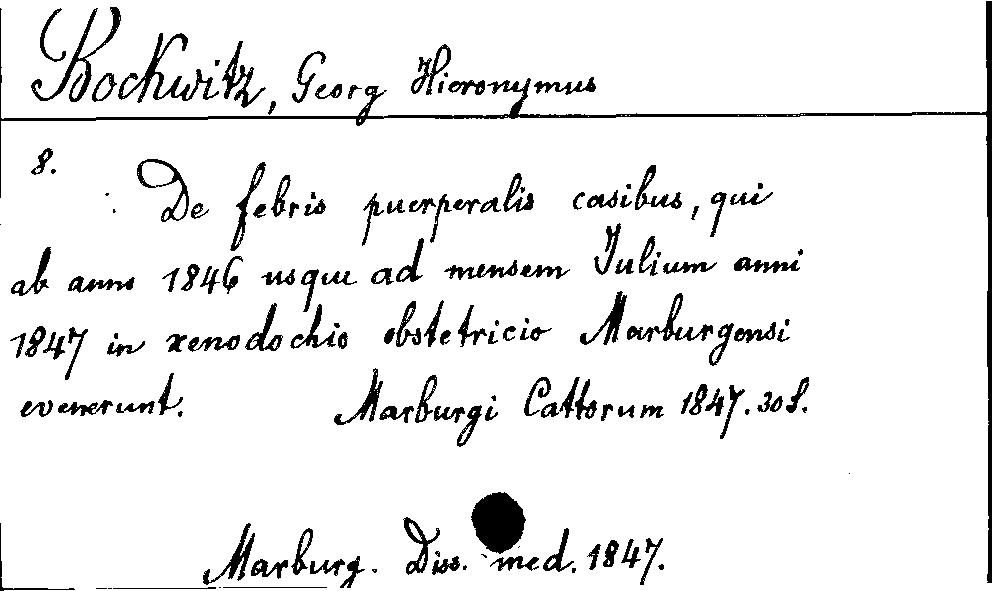 Bockwitz, Georg Hieronymus
8.
De febris puerperalis casibus, qui
ab anno 1846 usque ad mensem Julium anni
1847 in xenodochio obstetricio Marburgensi
evenerunt. Marburgi Cattorum 1847. 30 S.
Marburg. Diss. med. 1847.